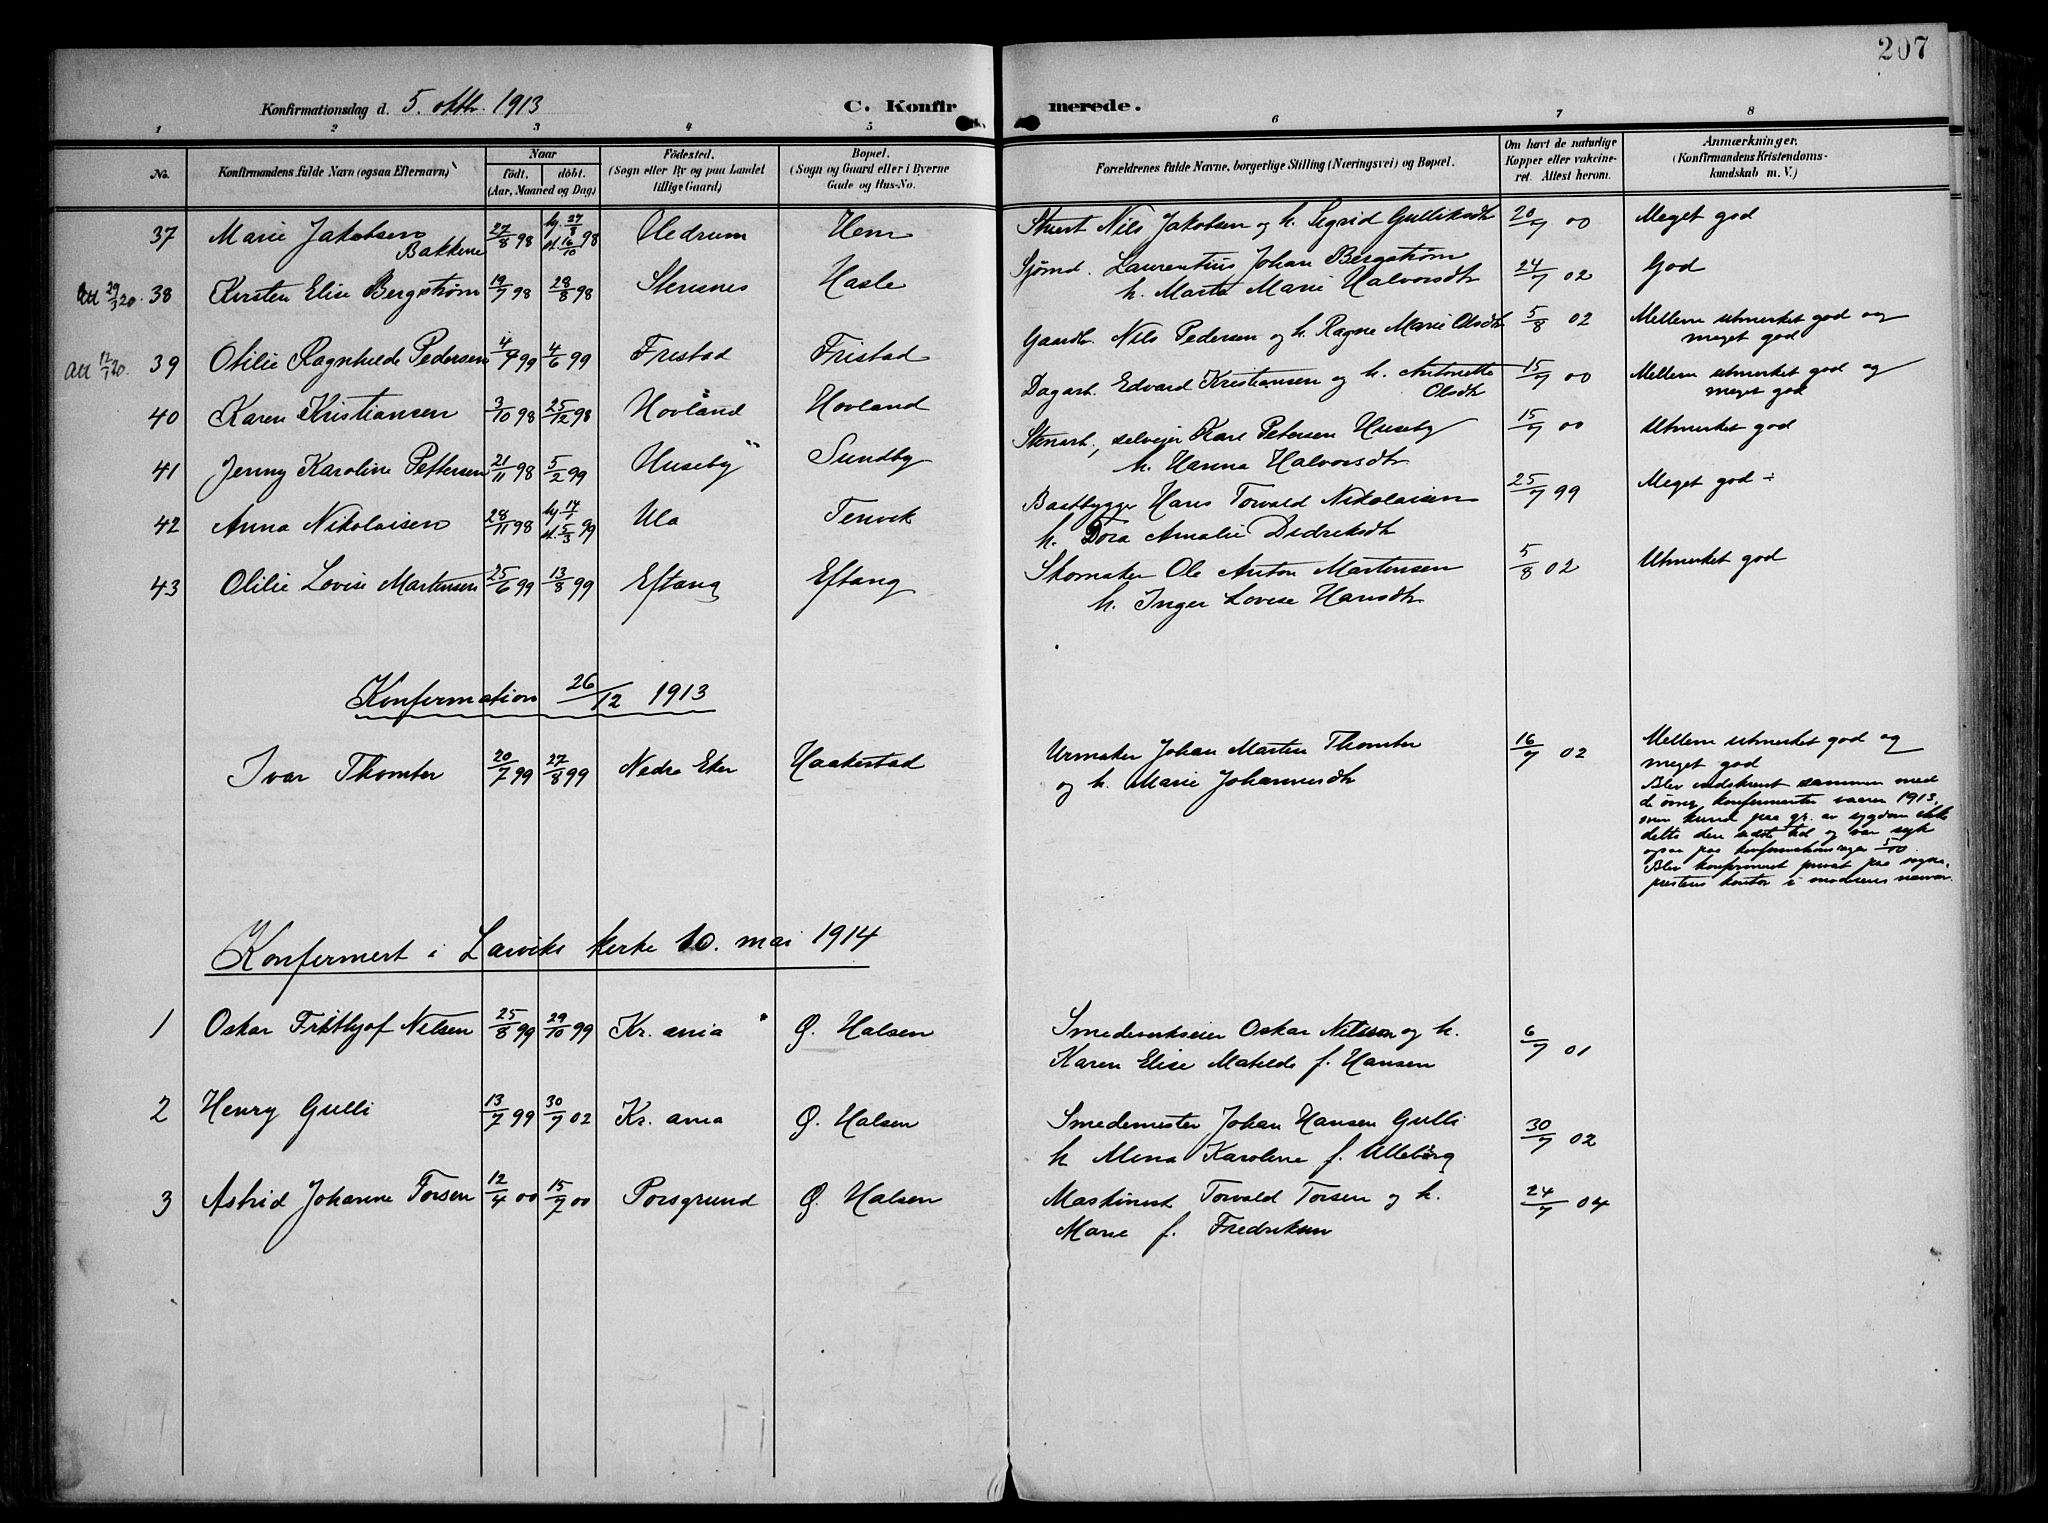 207
Konfirmationsdag d. 5. oktbr. 1913
C. Konfirmerede.
1 2 3 4 5 6 7 8
No. Konfirmandens fulde Navn (ogsaa Efternavn) Naar født. døbt. (Aar, Maaned og Dag) Fødested. (Sogn eller By og paa Landet tillige Gaard) Bopæl. (Sogn og Gaard eller i Byerne Gade og Hus-No. Forældrenes fulde Navne, borgerlige Stilling (Næringsvei) og Bopæl. Om havt de naturlige Kopper eller vakcineret. Attest herom. Anmærkninger. (Konfirmandens Kristendomskundskab m. V.)
37 Marie Jakobsen Bakkene 27/8 98 hj. 27/8 st. 16/10 98 Hedrum Hem Stuert Nils Jakobsen og h. Sigrid Gulliksdtr 20/7 00 Meget god
att 29/3 20. 38 Kirsten Elise Bergstrøm 19/7 98 28/8 98 Skresnes Hasle Sjømd. Laurentius Johan Bergstrøm
h. Marta Marie Halvorsdtr 24/7 02 God
att 12/1 20. 39 Otilie Ragnhilde Pedersen 4/4 99 4/6 99 Fristad Fristad Gaardbr. Nils Pedersen og h. Ragne Marie Olsdtr 5/8 02 Mellem utmerket god og
meget god
40 Karen Kristiansen 3/10 98 25/12 98 Hovland Hovland Dagarb. Edvard Kristiansen og h. Antonette
Olsdtr 15/7 00 Mellem utmerket god og
meget god
41 Jenny Karoline Pettersen 21/11 98 5/2 99 Huseby Sundby Stenarb., selveier Karl Petersen Huseby
h. Hanna Halvorsdtr 15/7 00 Utmerket god
42 Anna Nikolaisen 28/11 98 hj. 17/1 st. 5/3 99 Ula Tenvik Baatbygge Hans Torvald Nikolaisen
h. Dora Amalie Didriksdtr 25/7 99 Meget god ÷
43 Otilie Lovise Martensen 25/6 99 13/8 99 Eftang Eftang Skomaker Ole Anton Martensen
h. Inger Lovise Hansdtr 5/8 02 Utmerket god
Konfermation 26/12 1913
Ivar Thomter 20/7 99 27/8 99 Nedre Eker Haakestad Urmaker Johan Martin Thomter
og h. Marie Johannesdtr 16/7 02 Mellem utmerket god og
meget god
Blev indskrevet sammen med
de øvrig konfermenter vaaren 1913,
men kund paa gr. av sygdom ikke
delta den sidste tid og var syk
ogsaa paa konfermationsdagen 5/10.
Blev konfermert privat paa sogne-
prestens kontor i moderens nærvær.
Konfermert i Larviks kirke 10. mai 1914
1 Oskar Fritthjof Nilsen 25/8 99 29/10 99 Kr.ania Ø. Halsen Smedverkseier Oskar Nilsson og h.
Karen Elise Matilde f. Hansen 6/7 01
2 Henry Gulli 13/7 99 30/7 02 Kr.ania Ø. Halsen Smedemester Johan Hansen Gulli
h Mina Karoline f. Ulleberg 30/7 02
3 Astrid Johanne Torsen 12/4 00 15/7 00 Porsgrund Ø. Halsen Maskinist Torvald Torsen og h.
Marie f. Fredriksen 24/7 04